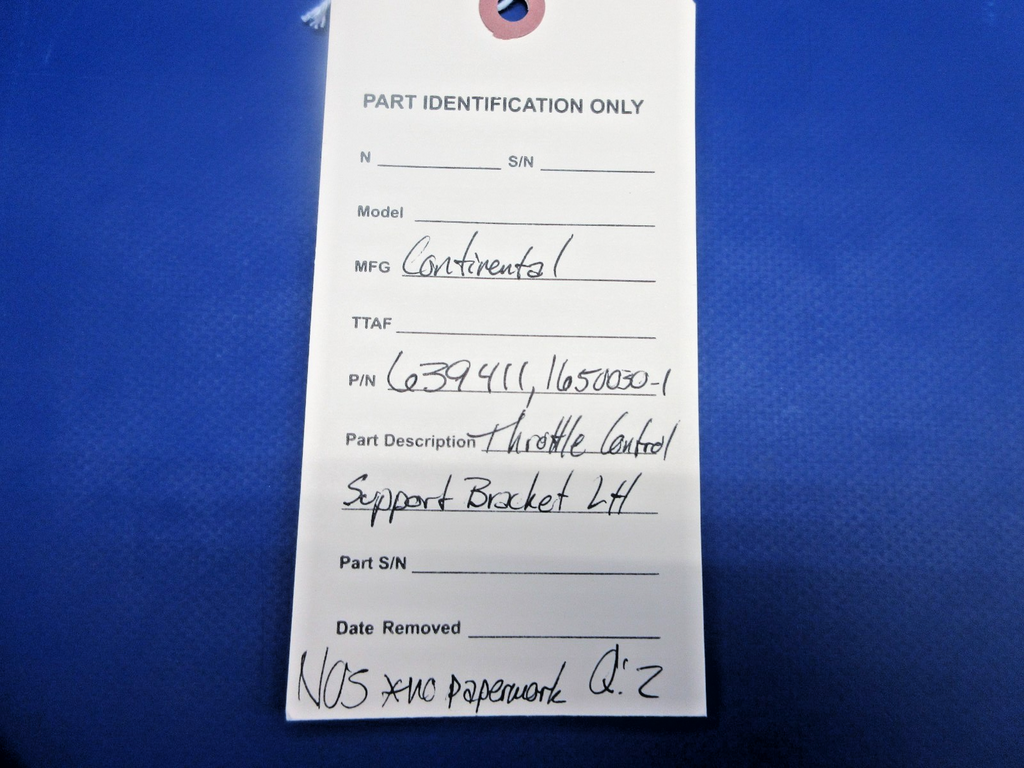 PART IDENTIFICATION ONLY
N S/N
Model
MFG Continental
TTAF
P/N 639411, 1650030-1
Part Description Throttle Control
Support Bracket LH
Part S/N
Date Removed
NOS *no paperwork Q: 2